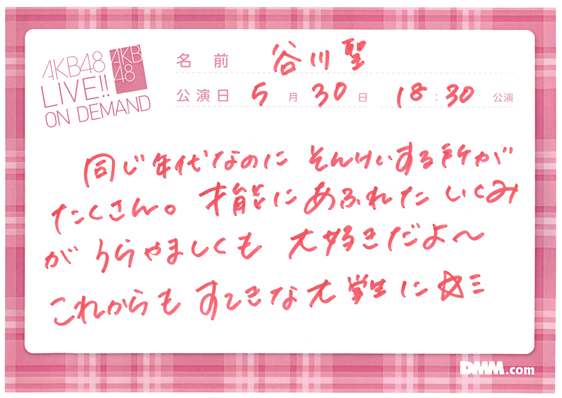 AKB48
LIVE!!
ON DEMAND
AKB
48
名前 谷川聖
公演日 5月30日 18:30公演
同じ年代なのに そんけいする所が
たくさん。才能にあふれた いくみ
が うらやましくも 大好きだよ〜
これからも すてきな大学生に ☆ミ
DMM.com